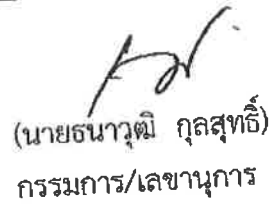 (นายธนาวุฒิ กุลสุทธิ์)
กรรมการ/เลขานุการ